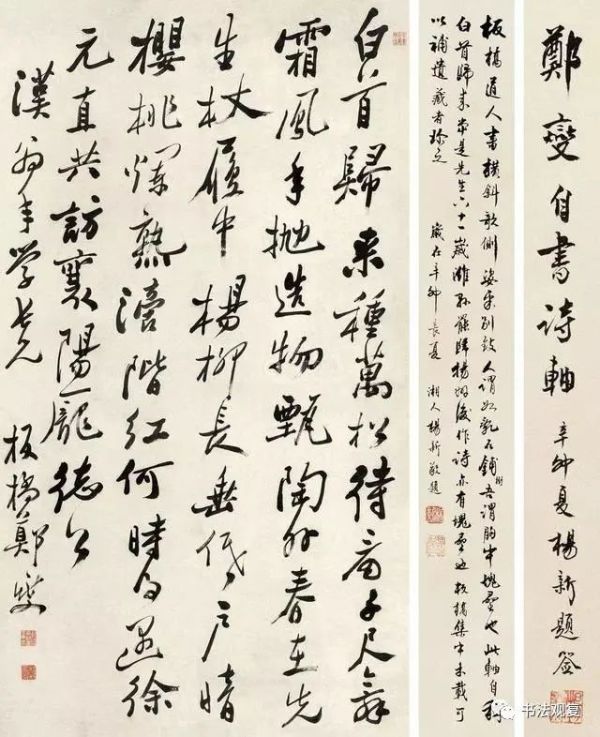 鄭燮自書詩軸 辛卯夏楊新題簽
板橋道人書橫斜欹側姿采別致人謂如亂石鋪街吾謂胸中塊壘也此軸自稱
白首歸來當是先生六十一歲濰縣罷歸揚州後作詩亦有塊壘也板橋集中未載可
以補遺藏者珍之 歲在辛卯長夏 湘人楊新敬題
白首歸來種萬松待看千尺舞
霜風年拋造物甄陶外春在先
生杖履中楊柳長垂低戶暗
櫻桃爛熟滴階紅何時遇徐
元直共訪襄陽龐德公
漢翁年學長兄 板橋鄭燮
书法观复